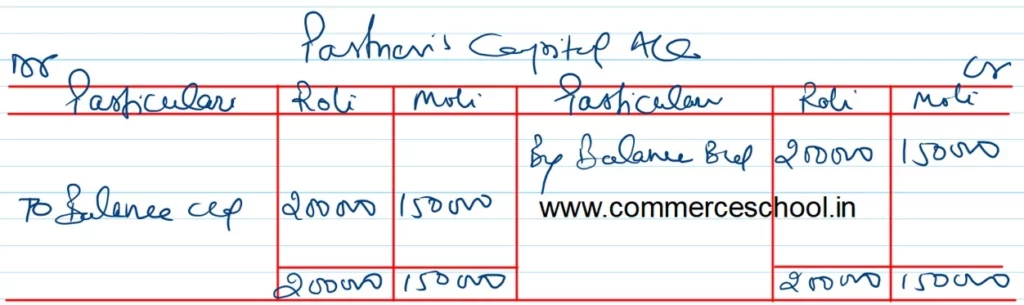 Partner's Capital A/Cs
Dr Cr
Particulars Roli Moli Particulars Roli Moli
By Balance B/d 200000 150000
To Balance c/d 200000 150000 www.commerceschool.in
200000 150000 200000 150000